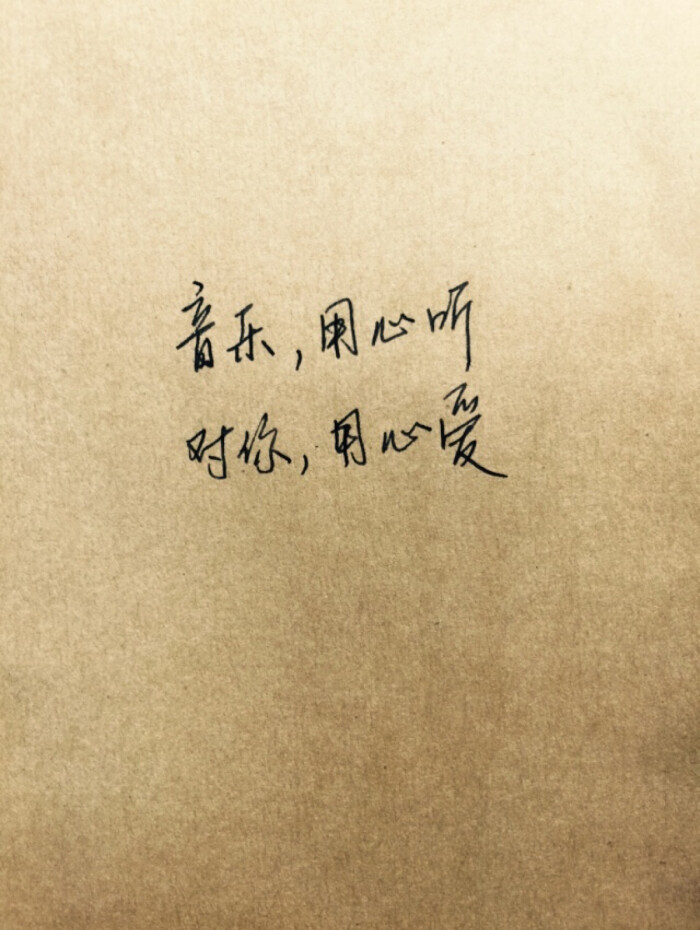 音乐,用心听
对你,用心爱